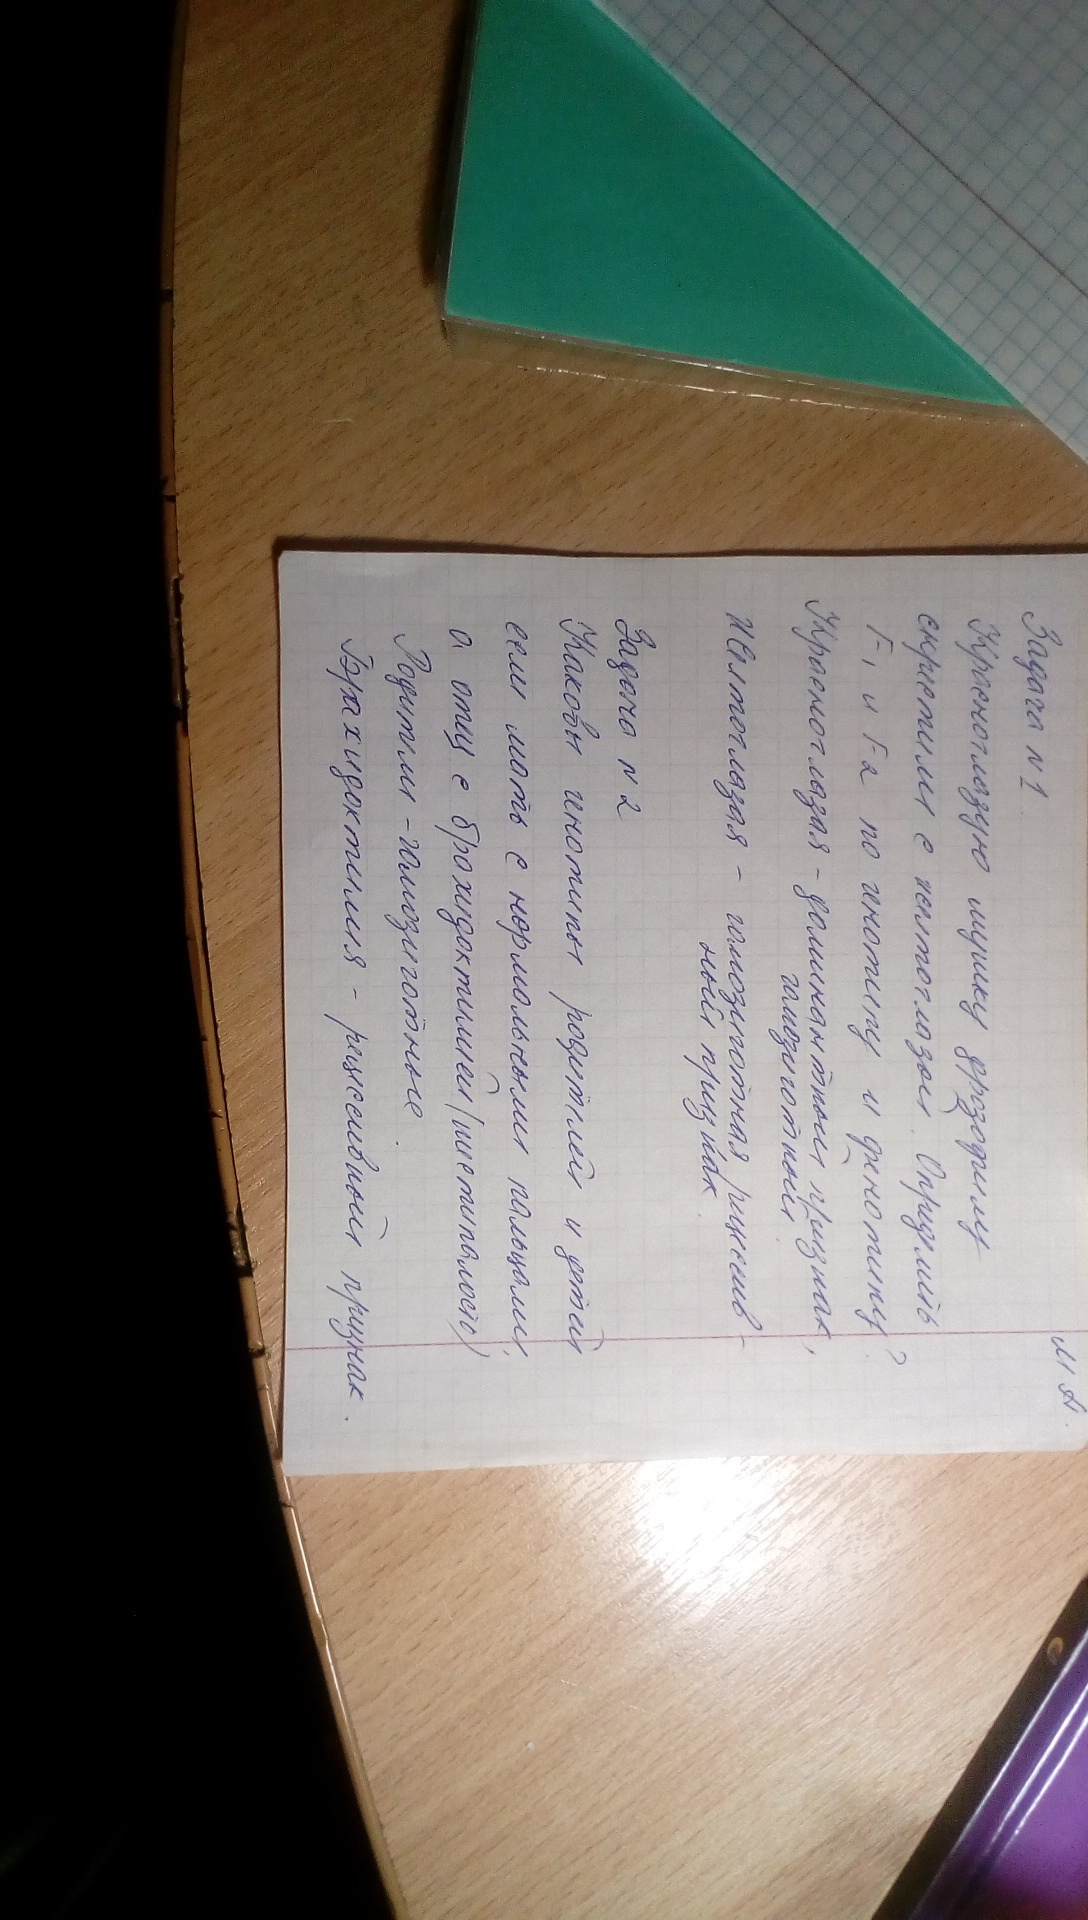 м я.
Задача N 1.
Красноглазую мушку дрозофилу
скрестили с желтоглазой. Определить
F1 и F2 по генотипу и фенотипу?
Красноглазая - доминантный признак,
гомозиготный
Желтоглазая - гомозиготная, рецессив-
ный признак.
Задача N 2
Каковы генотипы родителей и детей
если мать с нормальными пальцами,
а отец с брахидактилией (шестипалость)
Родители - гомозиготные.
Брахидактилия - рецессивный признак.